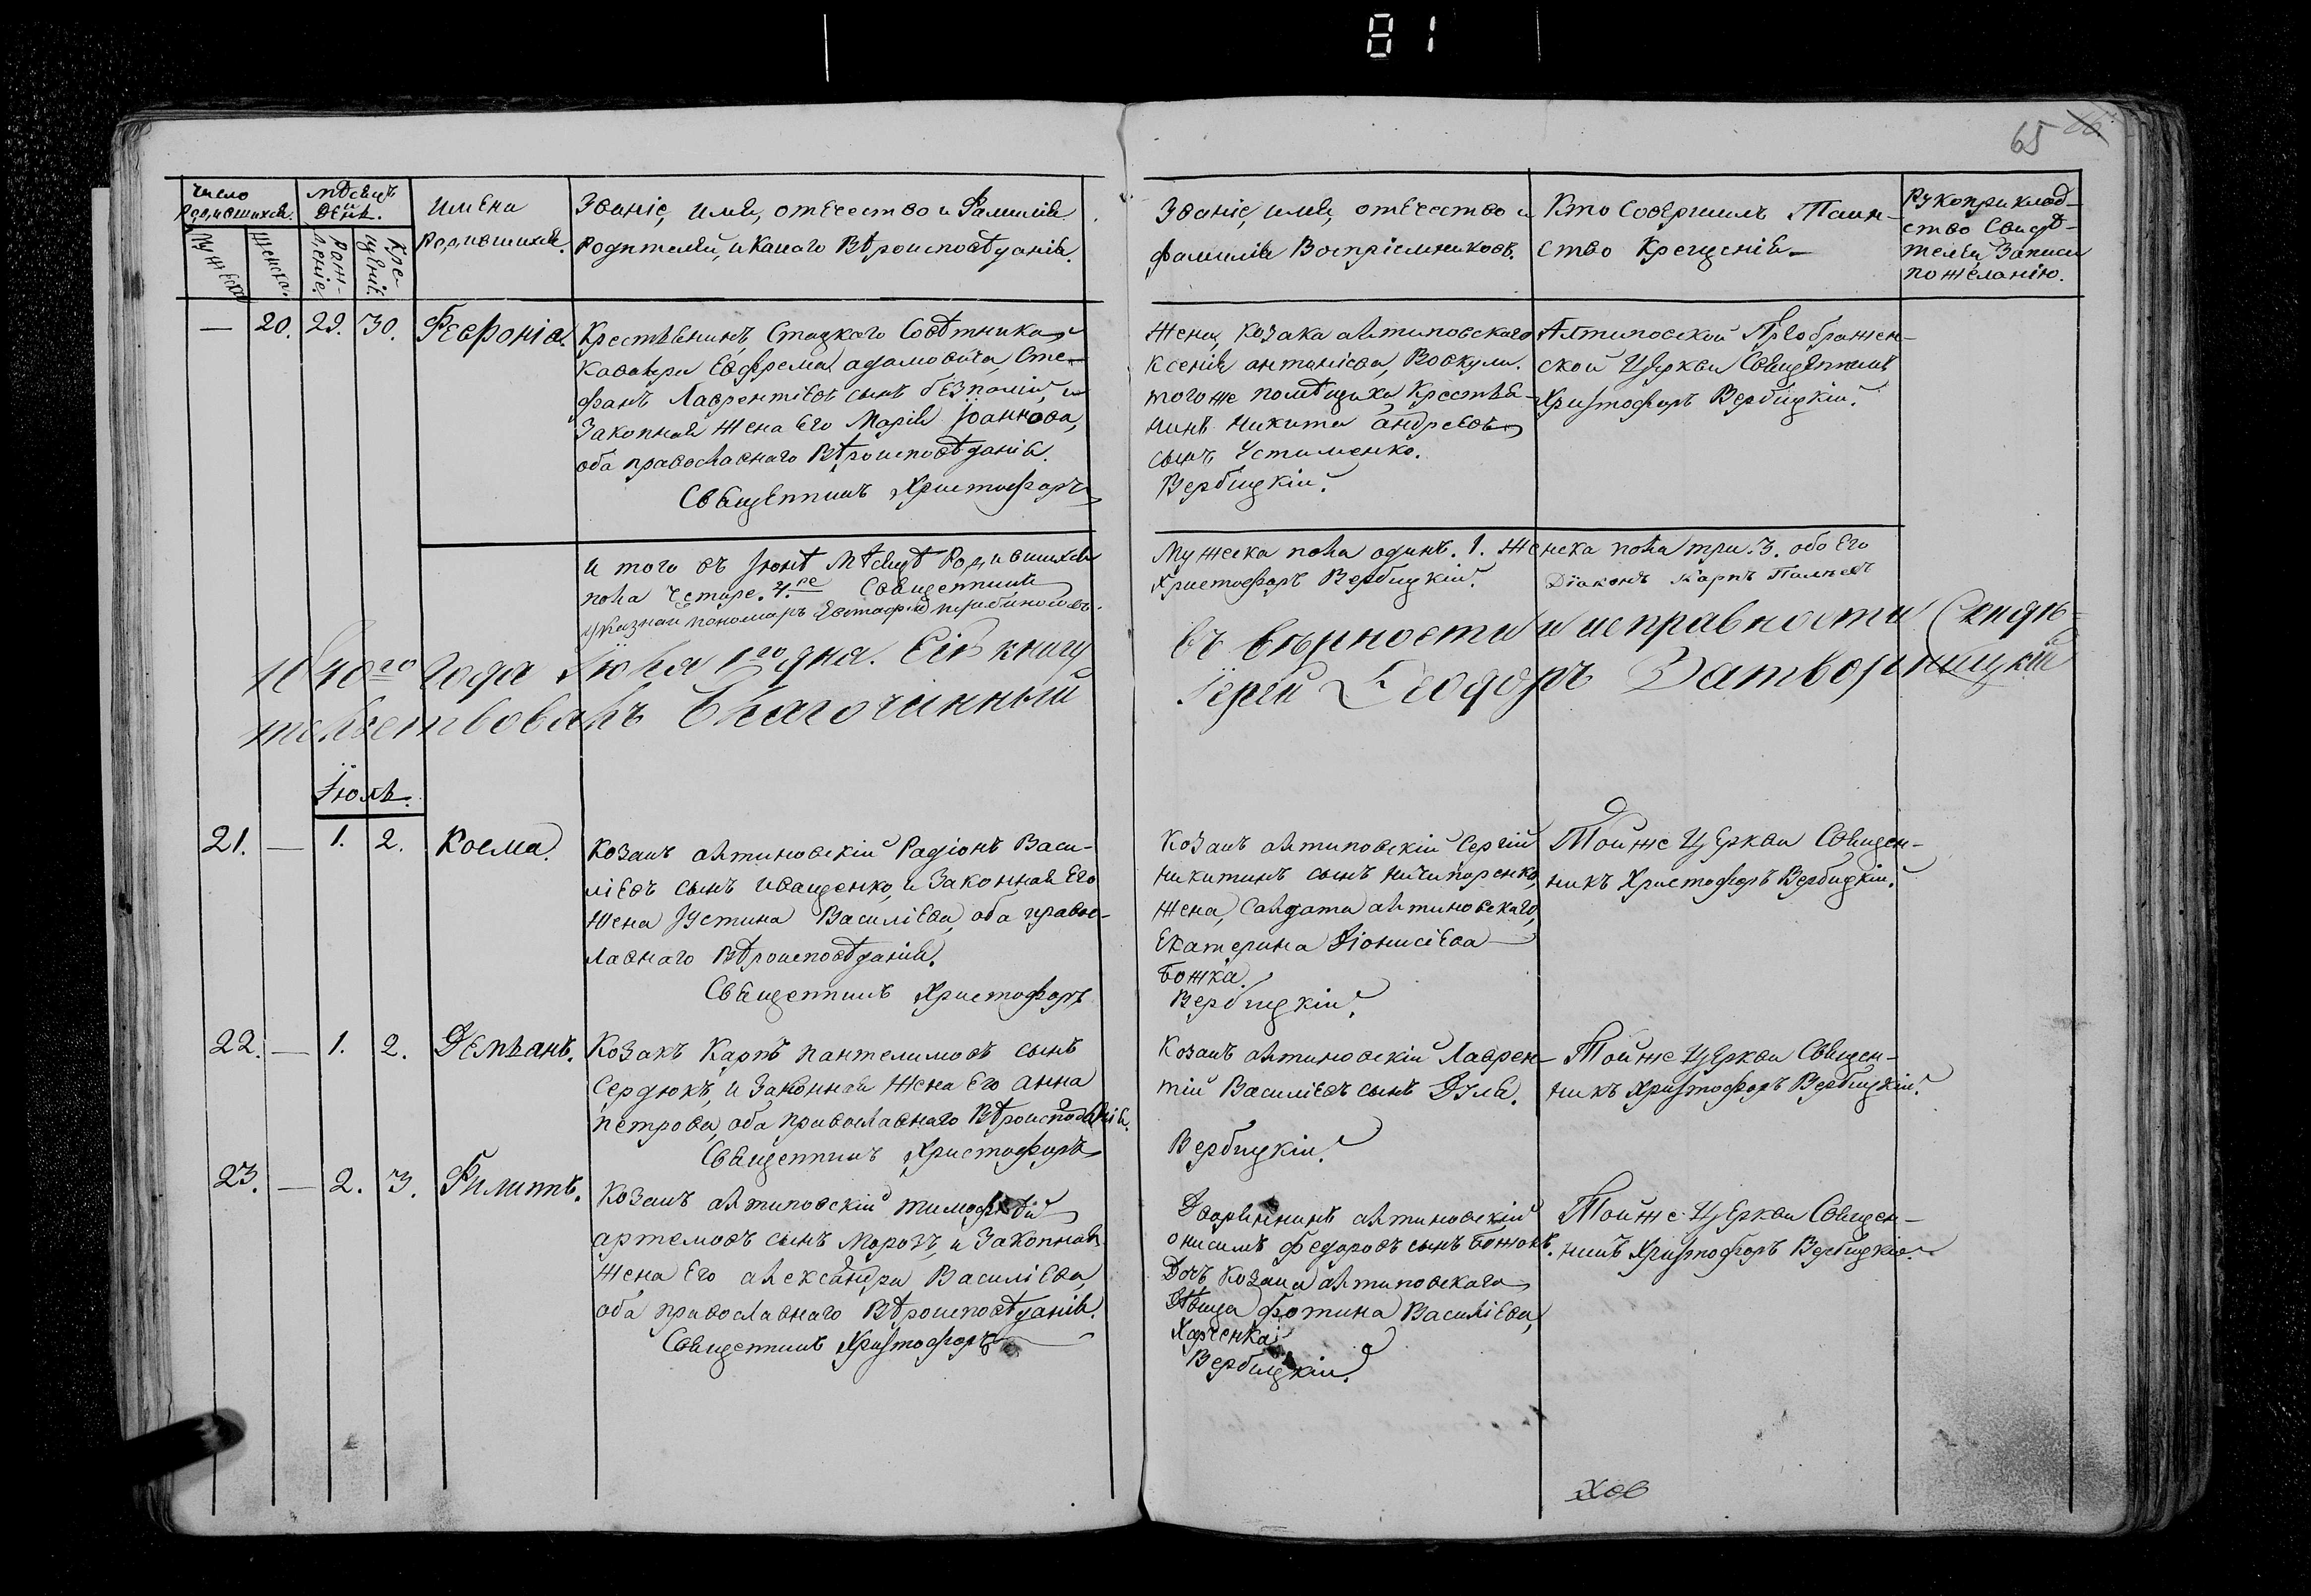 81
65
Число Родившихся.
Мѣсяцъ и День.
Имена Родившихся.
Званіе, имя, отечество и Фамилія
Родителей, и какаго Вѣроисповѣданія.
Мужеска
Женска.
Рож-
деніе.
Кре-
щеніе.
Званіе, имя, отечество и
фамилія Воспріемниковъ.
Кто Совершилъ Таин-
ство Крещенія
Рукоприклад-
ство Свидѣ-
телей Записи
по желанію.
— 20. 29. 30. Феѵронія
Крестьянинъ, Статскаго Совѣтника и
Кавалера Евфрема адамовича, Сте-
фанъ Лаврентіевъ сынъ безпалій, и
Законная жена Его Марія Іоаннова,
оба православнаго Вѣроисповѣданія.
Священникъ Христофоръ
Жена, Козака алтиновскаго
Ксенія антоніева, Вовкула.
тогоже помѣщика Крестья-
нинъ Никита андреевъ
сынъ Устименко.
Вербицкій.
Алтиновской Преображен-
ской Церкви Священникъ
Христофоръ Вербицкій.
И того въ Іюнѣ Мѣсяцѣ Родившихся
пола Четыре. 4.ре Священникъ
указной пономаръ Евстафій
Мужеска пола одинъ. 1. Женска пола три. 3. обоего
Христофоръ Вербицкій. Діаконъ Карпъ
1840го Года Іюля 1го дня. Сію книгу
въ вѣрности и исправности Свидѣ-
тельствовалъ Благочинный
Іерей Ѳеодоръ Затворницкій
Іюль.
21. — 1. 2. Косма.
Козакъ алтиновскій Радіонъ Васи-
ліевъ сынъ иващенко, и Законная Его
жена Іустина Василіева, оба правос-
лавнаго Вѣроисповѣданія.
Священникъ Христофоръ
Козакъ алтиновскій Сергій
никитинъ сынъ ничипоренко,
жена, Салдата алтиновскаго,
Екатерина Діонисіева
Божка.
Вербицкій.
Тойже Церкви Священ-
никъ Христофоръ Вербицкій.
22. — 1. 2. Деміанъ.
Козакъ Карпъ пантелимовъ сынъ
Сердюкъ, и Законная жена Его анна
петрова, оба православнаго Вѣроисповѣданія.
Священникъ Христофоръ
Козакъ алтиновскій Лаврен-
тій Василіевъ сынъ Дуля.
Вербицкій.
Тойже Церкви Священ-
никъ Христофоръ Вербицкій.
23. — 2. 3. Филиппъ.
Козакъ алтиновскій тимофѣй
артемовъ сынъ Морозъ, и Законная
жена Его александра Василіева,
оба православнаго Вѣроисповѣданія.
Священникъ Христофоръ
Дворянинъ алтиновскій
онисимъ федоровъ сынъ Божокъ.
Дочь Козака алтиновскаго
Дѣвица фотина Василіева,
Харченка
Вербицкій.
Тойже Церкви Священ-
никъ Христофоръ Вербицкій.